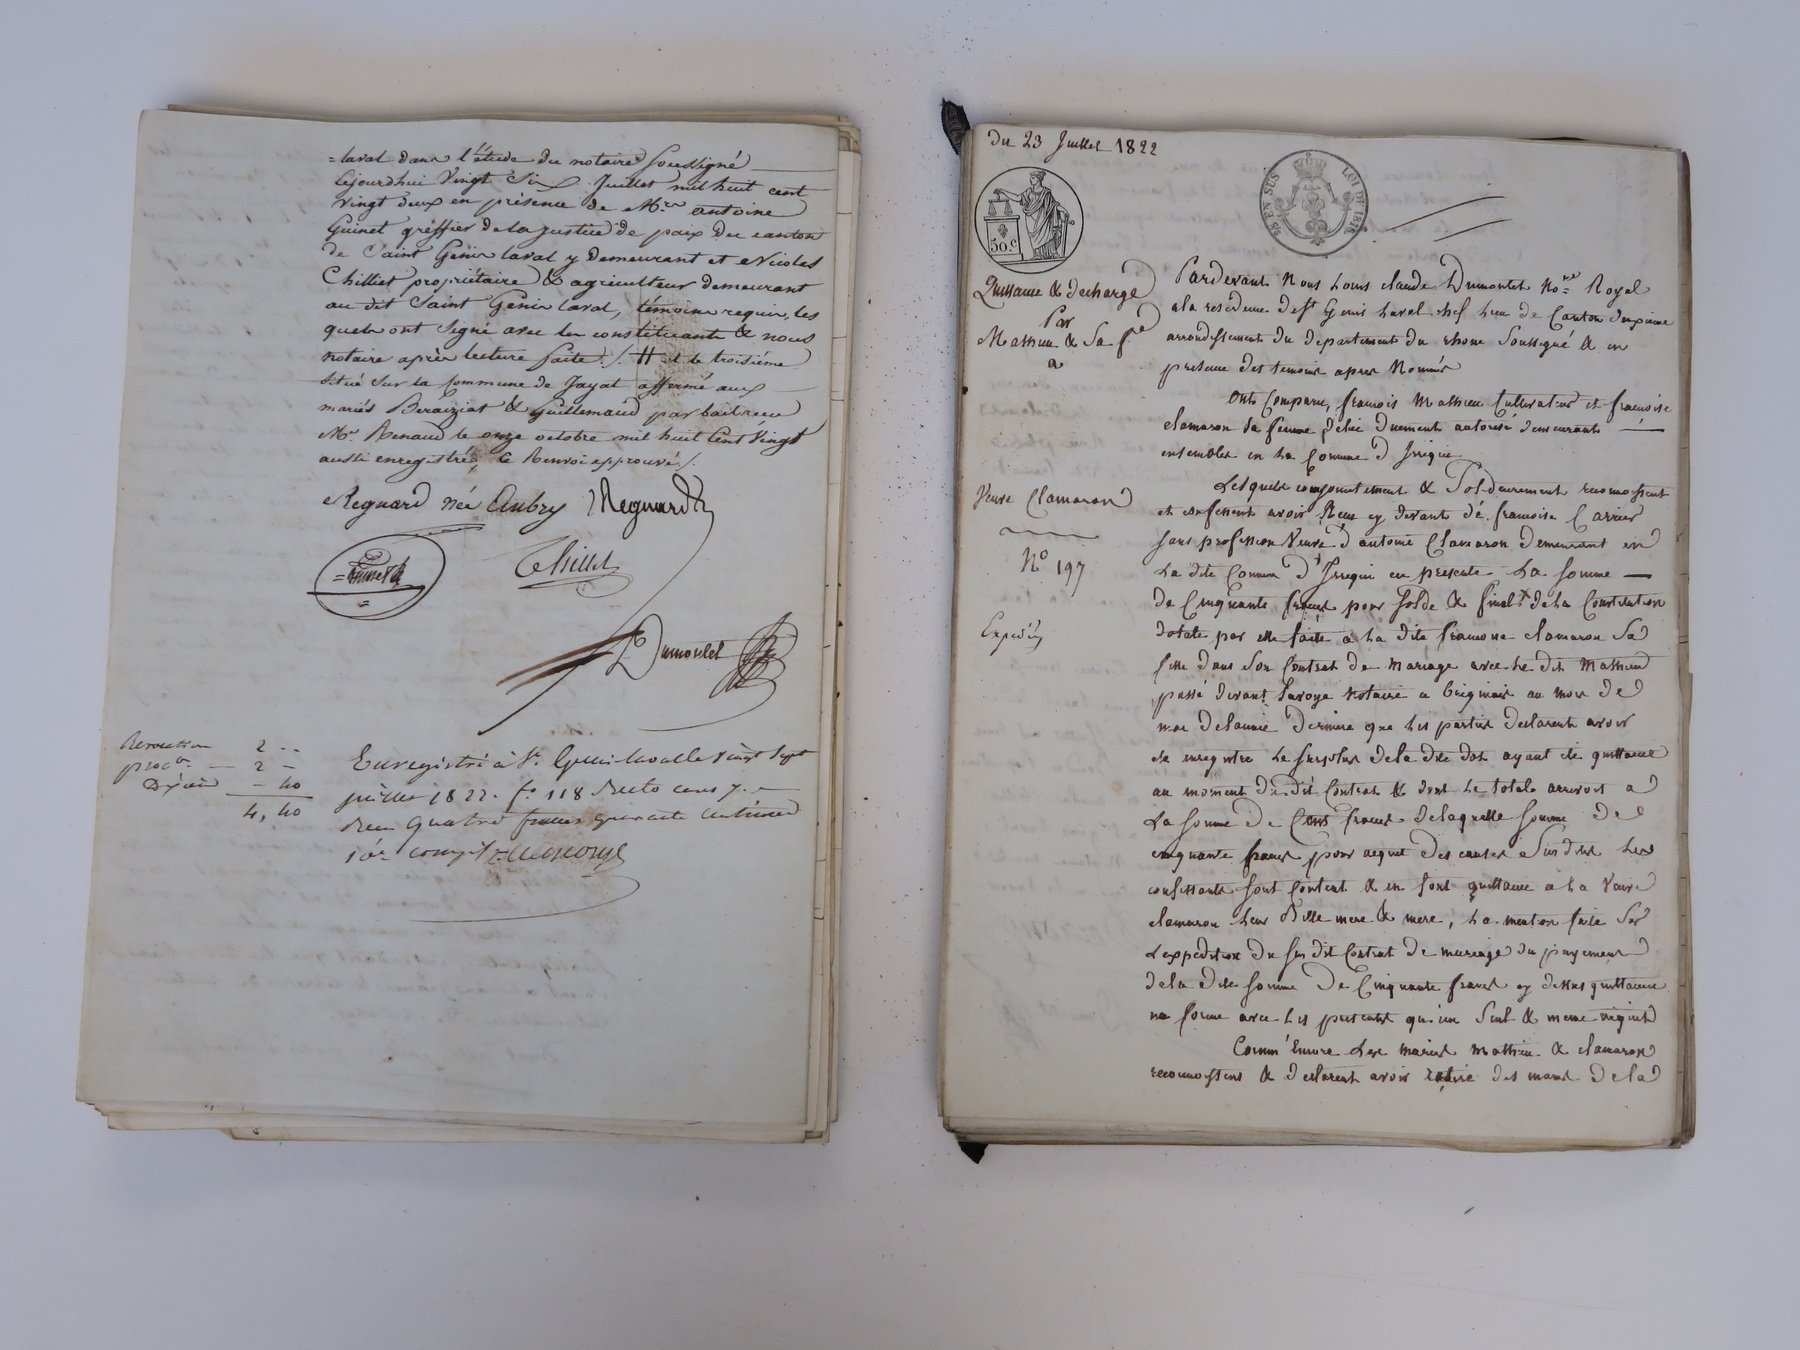 =laval dans l'étude du notaire Soussigné
cejourdhui Vingt Six Juillet mil huit cent
Vingt deux en présence de Mrs antoine
Guinet gréffier de la justice de paix du canton
de Saint Genis laval y demeurant et Nicolas
Chilliet propriétaire & agriculteur demeurant
au dit Saint Genis laval, témoins requis, les
quels ont signé avec les constituants & nous
notaire après lecture faite ./. # et le troisiéme
situé Sur la Commune de Jayat affermé aux
mariés Beraiziat & Guillemaud par bail reçu
Me Renaud le onze octobre mil huit Cent Vingt
aussi enregistré, ce Renvoi approuvé ./.
Regnard née Aubry Regnard
Guinet
Chillet
Dumortet
Revocation 2 --
procon — 2 —
Dixieme — 40
4, 40
Enregistré à St Genis laval le vingt sept
juillet 1822. fo 118 recto case 7.
reçu quatre francs quarante centimes
10e compris
Du 23 Juillet 1822
50.c
EN SUS LOI DE 1816
Quittance & decharge
Par
Mathieu & Sa fe
a
Veuve Clamaron
No 197
Expédié
Pardevant Nous Louis claude Dumortet Nore Royal
a la residence de St Genis Laval chef lieu de Canton deuxieme
arrondissement du departement du rhone Soussigné & en
presence des temoins apres Nommés
Ont Comparu, francois Mathieu Cultivateur et francoise
clamaron sa femme de lui duement autorisée demeurants
ensembles en la Comune d'Irigni
Lesquels conjointement & Solidairement reconnoissent
et confessent avoir Reçu cy devant de francoise Carrier
sans profession Veuve d'antoine Clamaron demeurant en
La dite Comune d'Irigni en presente La somme —
de Cinquante francs pour solde & final de La Constitution
dotale par elle faite a la dite francoise clamaron Sa
fille dans Son Contrat de Mariage avec Le dit Mathieu
passé devant Savoye Notaire a brignais au mois de
mai de l'année derniere que Les parties declarent avoir
été enregistré Le surplus de la dite dot ayant été quittancé
au moment du dit Contrat & dont Le total arrivoit a
La somme de Cent francs de laquelle somme de
cinquante francs pour acquit des causes Sus dites Les
confessants sont Content & en font quittance a La Veuve
clamaron Leur Belle mere & mere, La mention faite Sur
L'expédition du sus dit Contrat de mariage du payement
de la dite somme de Cinquante francs cy dessus quittancée
ne forme avec Les presentes qu'un Seul & meme acquit
Comm'Encore Les mariés Mathieu & clamaron
reconnoissent & declarent avoir retiré des mains de la